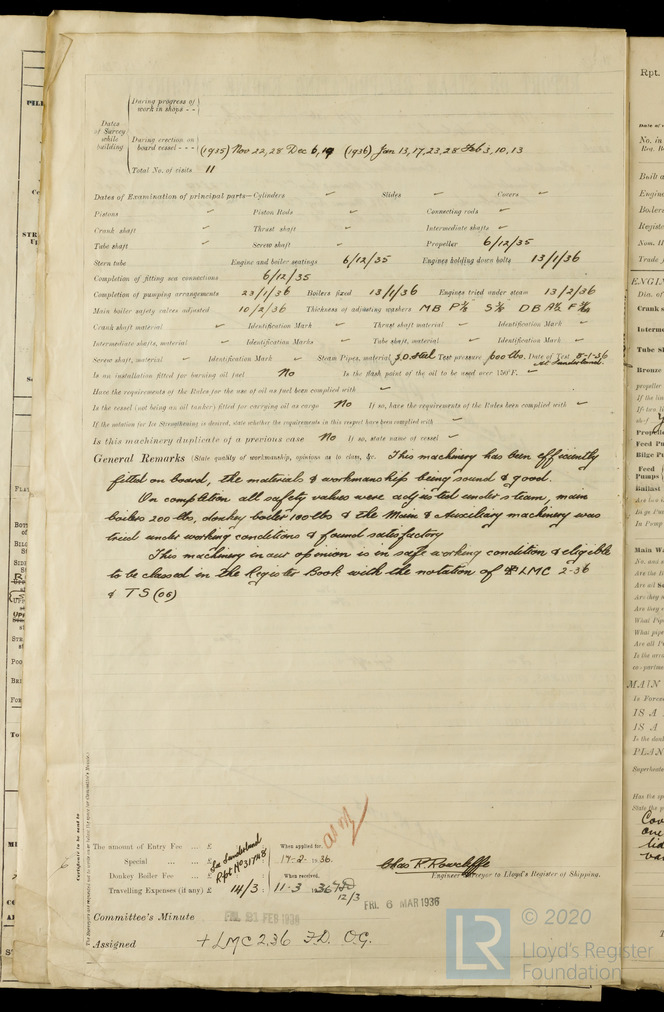 During progress of
work in shops - -
Dates
of Survey
while
building
During erection on
board vessel - - -
(1935) Nov 22, 28 Dec 6, 19 (1936) Jan 13, 17, 23, 28 Feb 3, 10, 13
Total No. of visits 11
Dates of Examination of principal parts—Cylinders ✓ Slides ✓ Covers ✓
Pistons ✓ Piston Rods ✓ Connecting rods ✓
Crank shaft ✓ Thrust shaft ✓ Intermediate shafts ✓
Tube shaft ✓ Screw shaft ✓ Propeller 6/12/35
Stern tube Engine and boiler seatings 6/12/35 Engines holding down bolts 13/1/36
Completion of fitting sea connections 6/12/35
Completion of pumping arrangements 23/1/36 Boilers fixed 13/1/36 Engines tried under steam 13/2/36
Main boiler safety valves adjusted 10/2/36 Thickness of adjusting washers MB P S DB A F
Crank shaft material ✓ Identification Mark ✓ Thrust shaft material ✓ Identification Mark ✓
Intermediate shafts, material ✓ Identification Marks ✓ Tube shaft, material ✓ Identification Mark ✓
Screw shaft, material ✓ Identification Mark ✓ Steam Pipes, material S.D. Steel Test pressure 600 lbs. Date of Test 8-1-36
At Sunderland.
Is an installation fitted for burning oil fuel No Is the flash point of the oil to be used over 150°F. ✓
Have the requirements of the Rules for the use of oil as fuel been complied with ✓
Is the vessel (not being an oil tanker) fitted for carrying oil as cargo No If so, have the requirements of the Rules been complied with ✓
If the notation for Ice Strengthening is desired, state whether the requirements in this respect have been complied with ✓
Is this machinery duplicate of a previous case No If so, state name of vessel ✓
General Remarks (State quality of workmanship, opinions as to class, &c. This machinery has been efficiently
fitted on board, the materials & workmanship being sound & good.
On completion all safety valves were adjusted under steam, main
boilers 200 lbs, donkey boiler 100 lbs & the Main & Auxiliary machinery was
tried under working conditions & found satisfactory
This machinery in our opinion is in safe working condition & eligible
to be classed in the Register Book with the notation of ✠ LMC 2-36
& TS (OG)
Certificate to be sent to
The amount of Entry Fee ... £
Special ... ... £
Donkey Boiler Fee ... £
Travelling Expenses (if any) £ 14/3
See Sunderland
Rpt No 31748
When applied for,
17-2-1936.
When received,
11-3 1936
12/3
Chas R. Rowcliffe
Engineer Surveyor to Lloyd's Register of Shipping.
Committee's Minute FRI. 21 FEB 1936 FRI. 6 MAR 1936
Assigned + LMC 2.36 F.D. O.G.
© 2020
LR
Lloyd's Register
Foundation
Rpt.